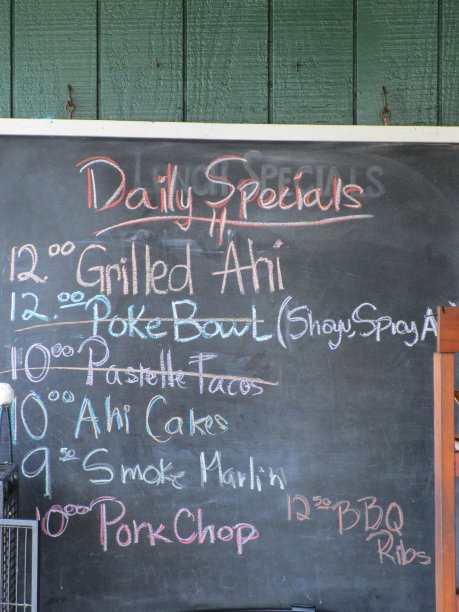 Daily Specials
12.00 Grilled Ahi
12.00 Poke Bowl (Shoyu, Spicy A
10.00 Pastelle Tacos
10.00 Ahi Cakes
9.50 Smoke Marlin
10.00 Pork Chop
12.50 BBQ
Ribs
LUNCH SPECIALS